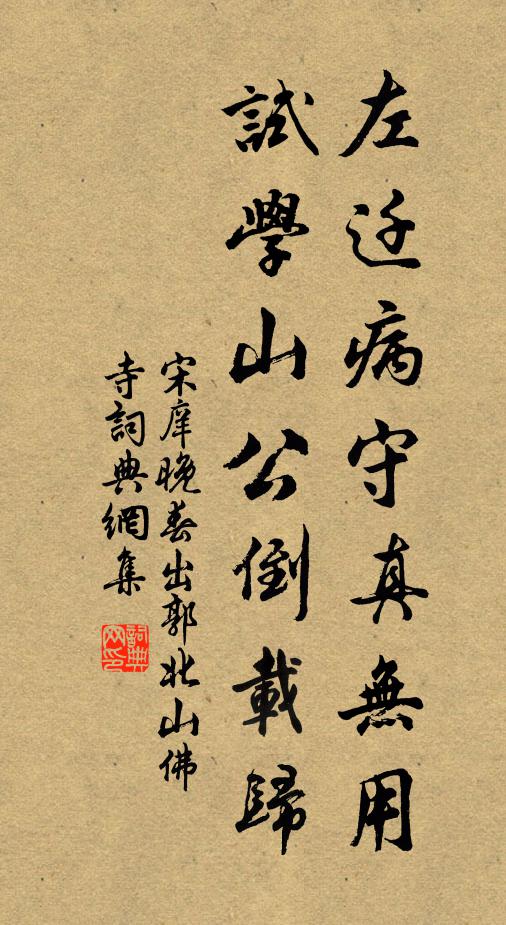 左迁病守真無用
試學山公倒載歸
宋庠晚春出郭北山佛
寺詞典網集
詞典
网印